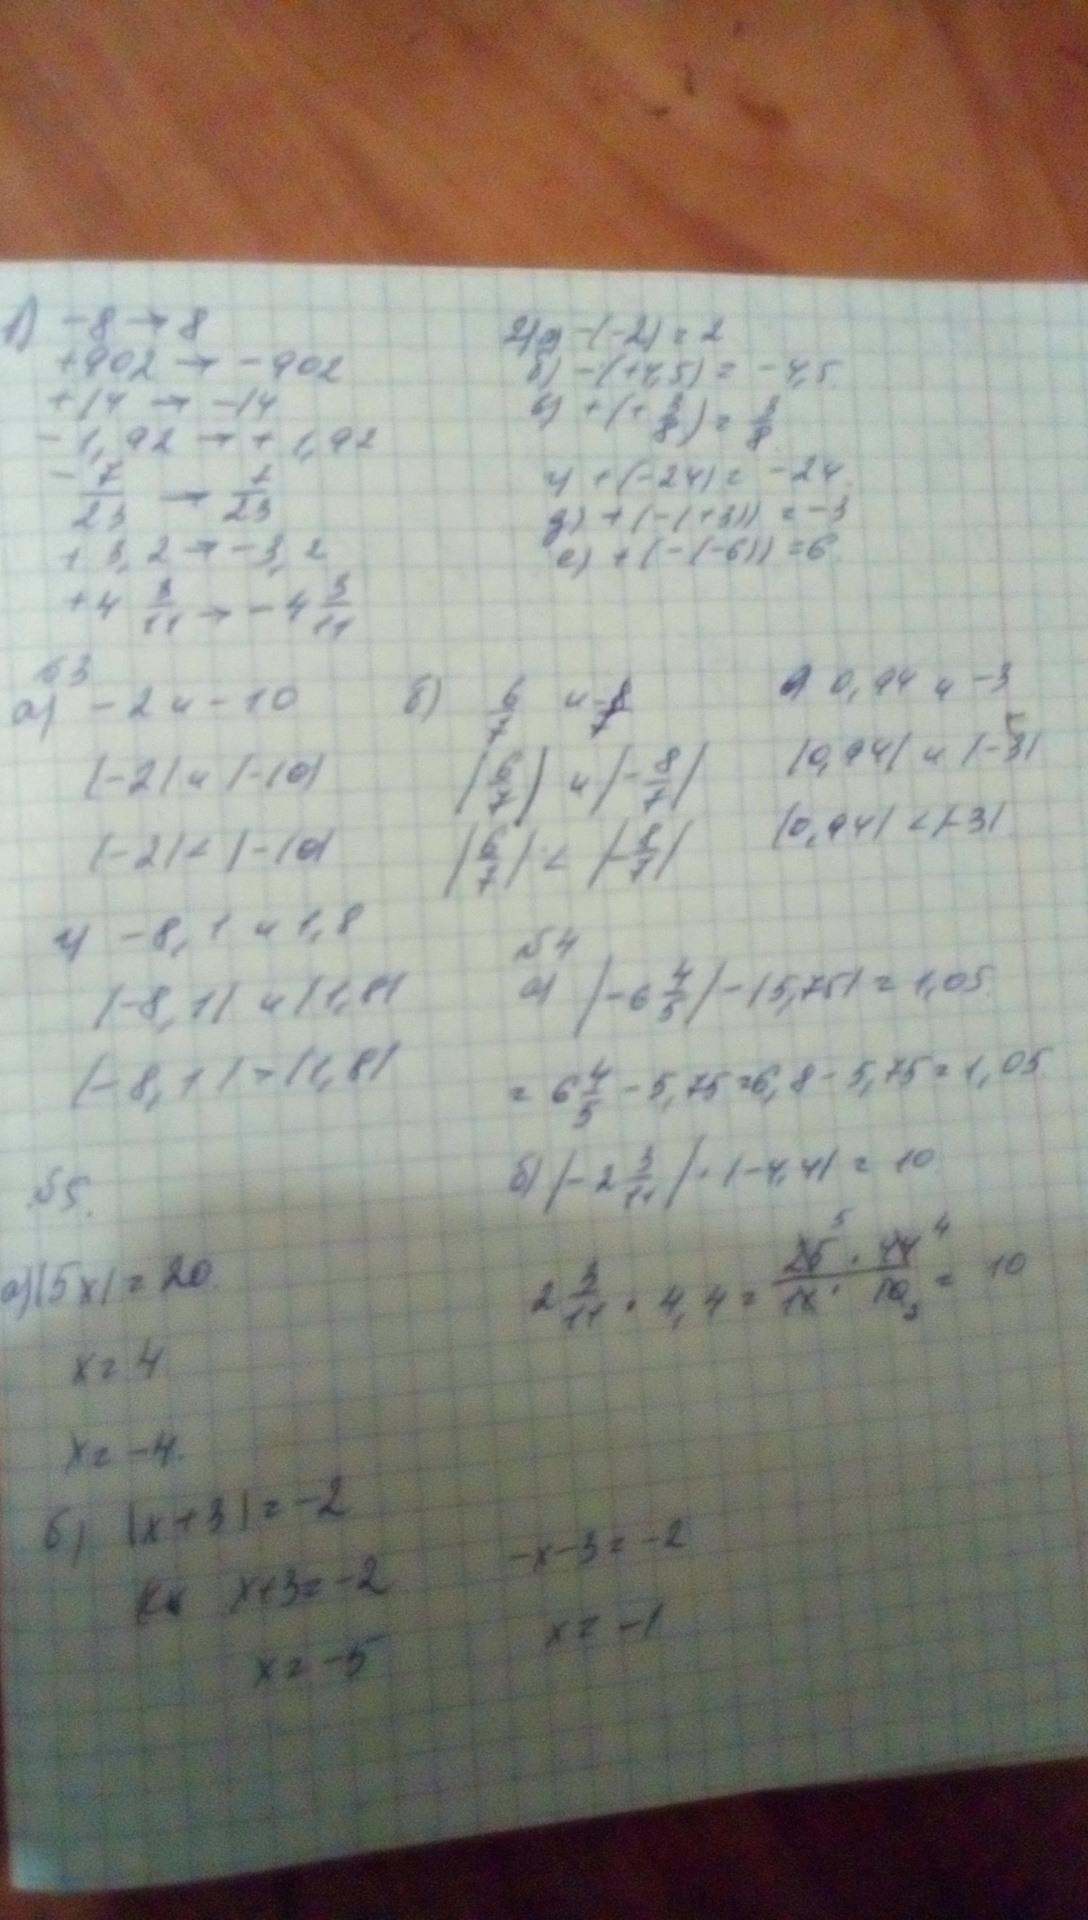 1) -8 → 8
+902 → -902
+14 → -14
-1,92 → +1,92
-7/23 → 7/23
+3,2 → -3,2
+4 3/11 → -4 3/11
2) а) -(-2) = 2
б) -(+4,5) = -4,5
в) +(+3/8) = 3/8
г) +(-24) = -24
д) +(-(+3)) = -3
е) +(-(-6)) = 6
№3
а) -2 и -10
|-2| и |-10|
|-2| < |-10|
б) 6/7 и -8/7
|6/7| и |-8/7|
|6/7| < |-8/7|
в) 0,94 и -3
|0,94| и |-3|
|0,94| < |-3|
г) -8,1 и 1,8
|-8,1| и |1,8|
|-8,1| > |1,8|
№4
а) |-6 4/5| - |5,75| = 1,05
= 6 4/5 - 5,75 = 6,8 - 5,75 = 1,05
б) |-2 3/11| · |-4,4| = 10
2 3/11 · 4,4 = 25 · 44 / 11 · 10 = 10
№5.
а) |5x| = 20
x = 4
x = -4.
б) |x+3| = -2
x+3 = -2
x = -5
-x-3 = -2
x = -1